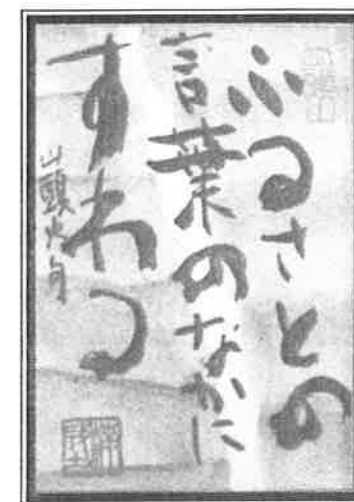 ふるさとの
言葉のなかに
すわる
山頭火句